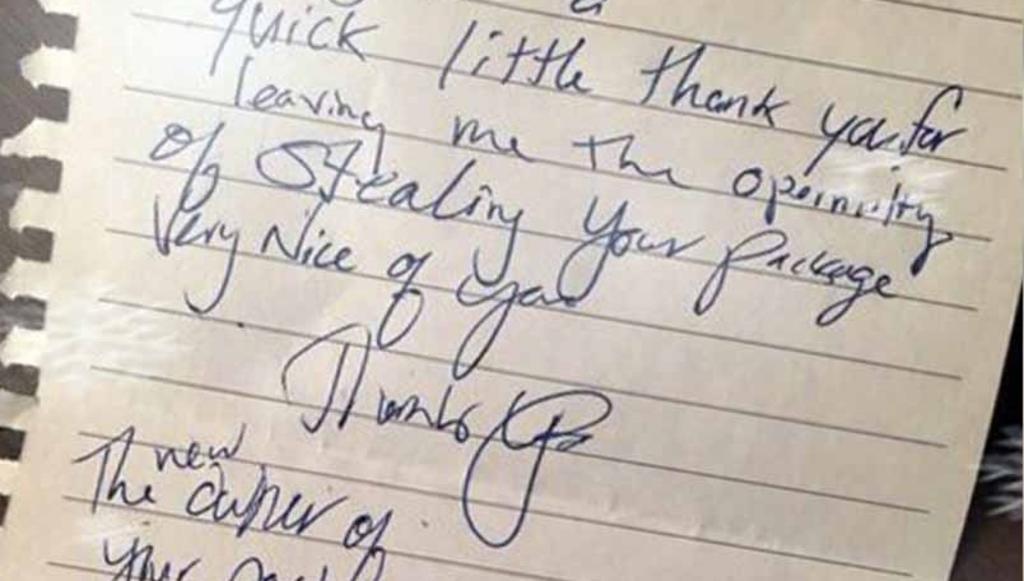 a
quick little thank you for
leaving me the oppernity
of Stealing your package
Very Nice of you
Thanks
new
The owner of
your